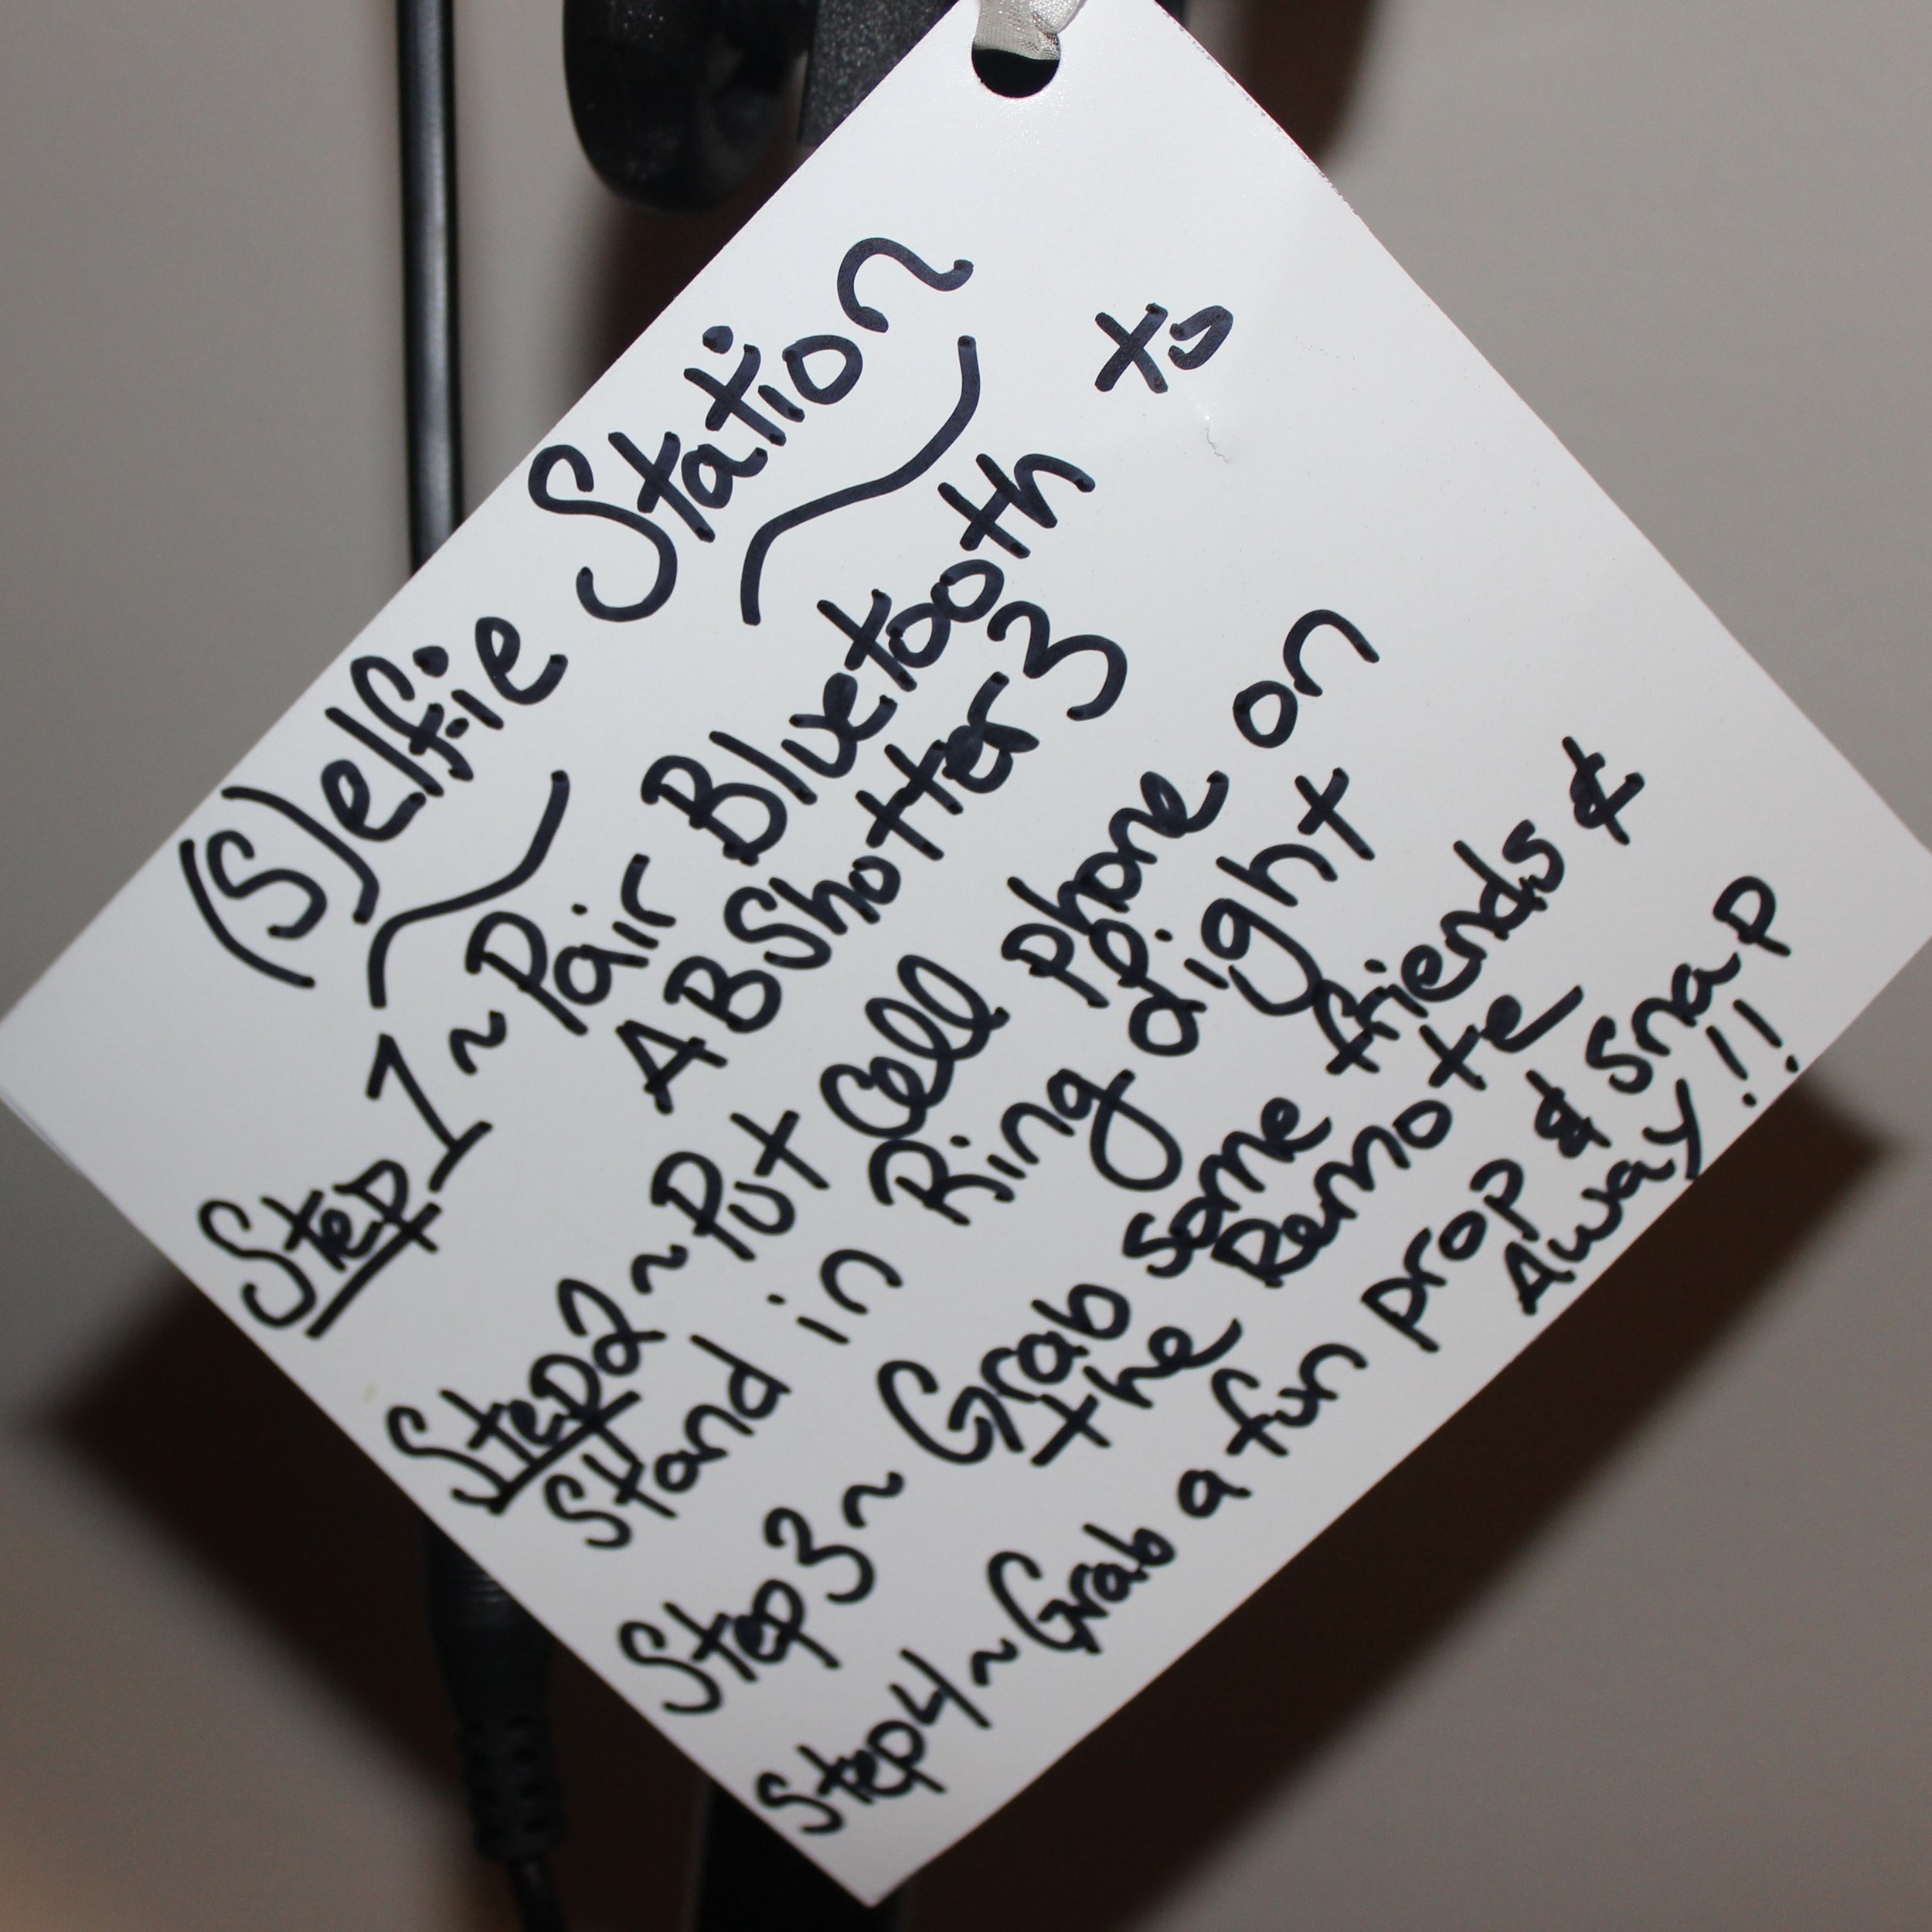 (S)elfie Station
Step 1 ~ Pair Bluetooth to
AB Shotter 3
Step 2 ~ Put Cell phone on
Stand in Ring Light
Step 3 ~ Grab some friends &
the Remote
Step 4 ~ Grab a fun prop & snap
Away!!